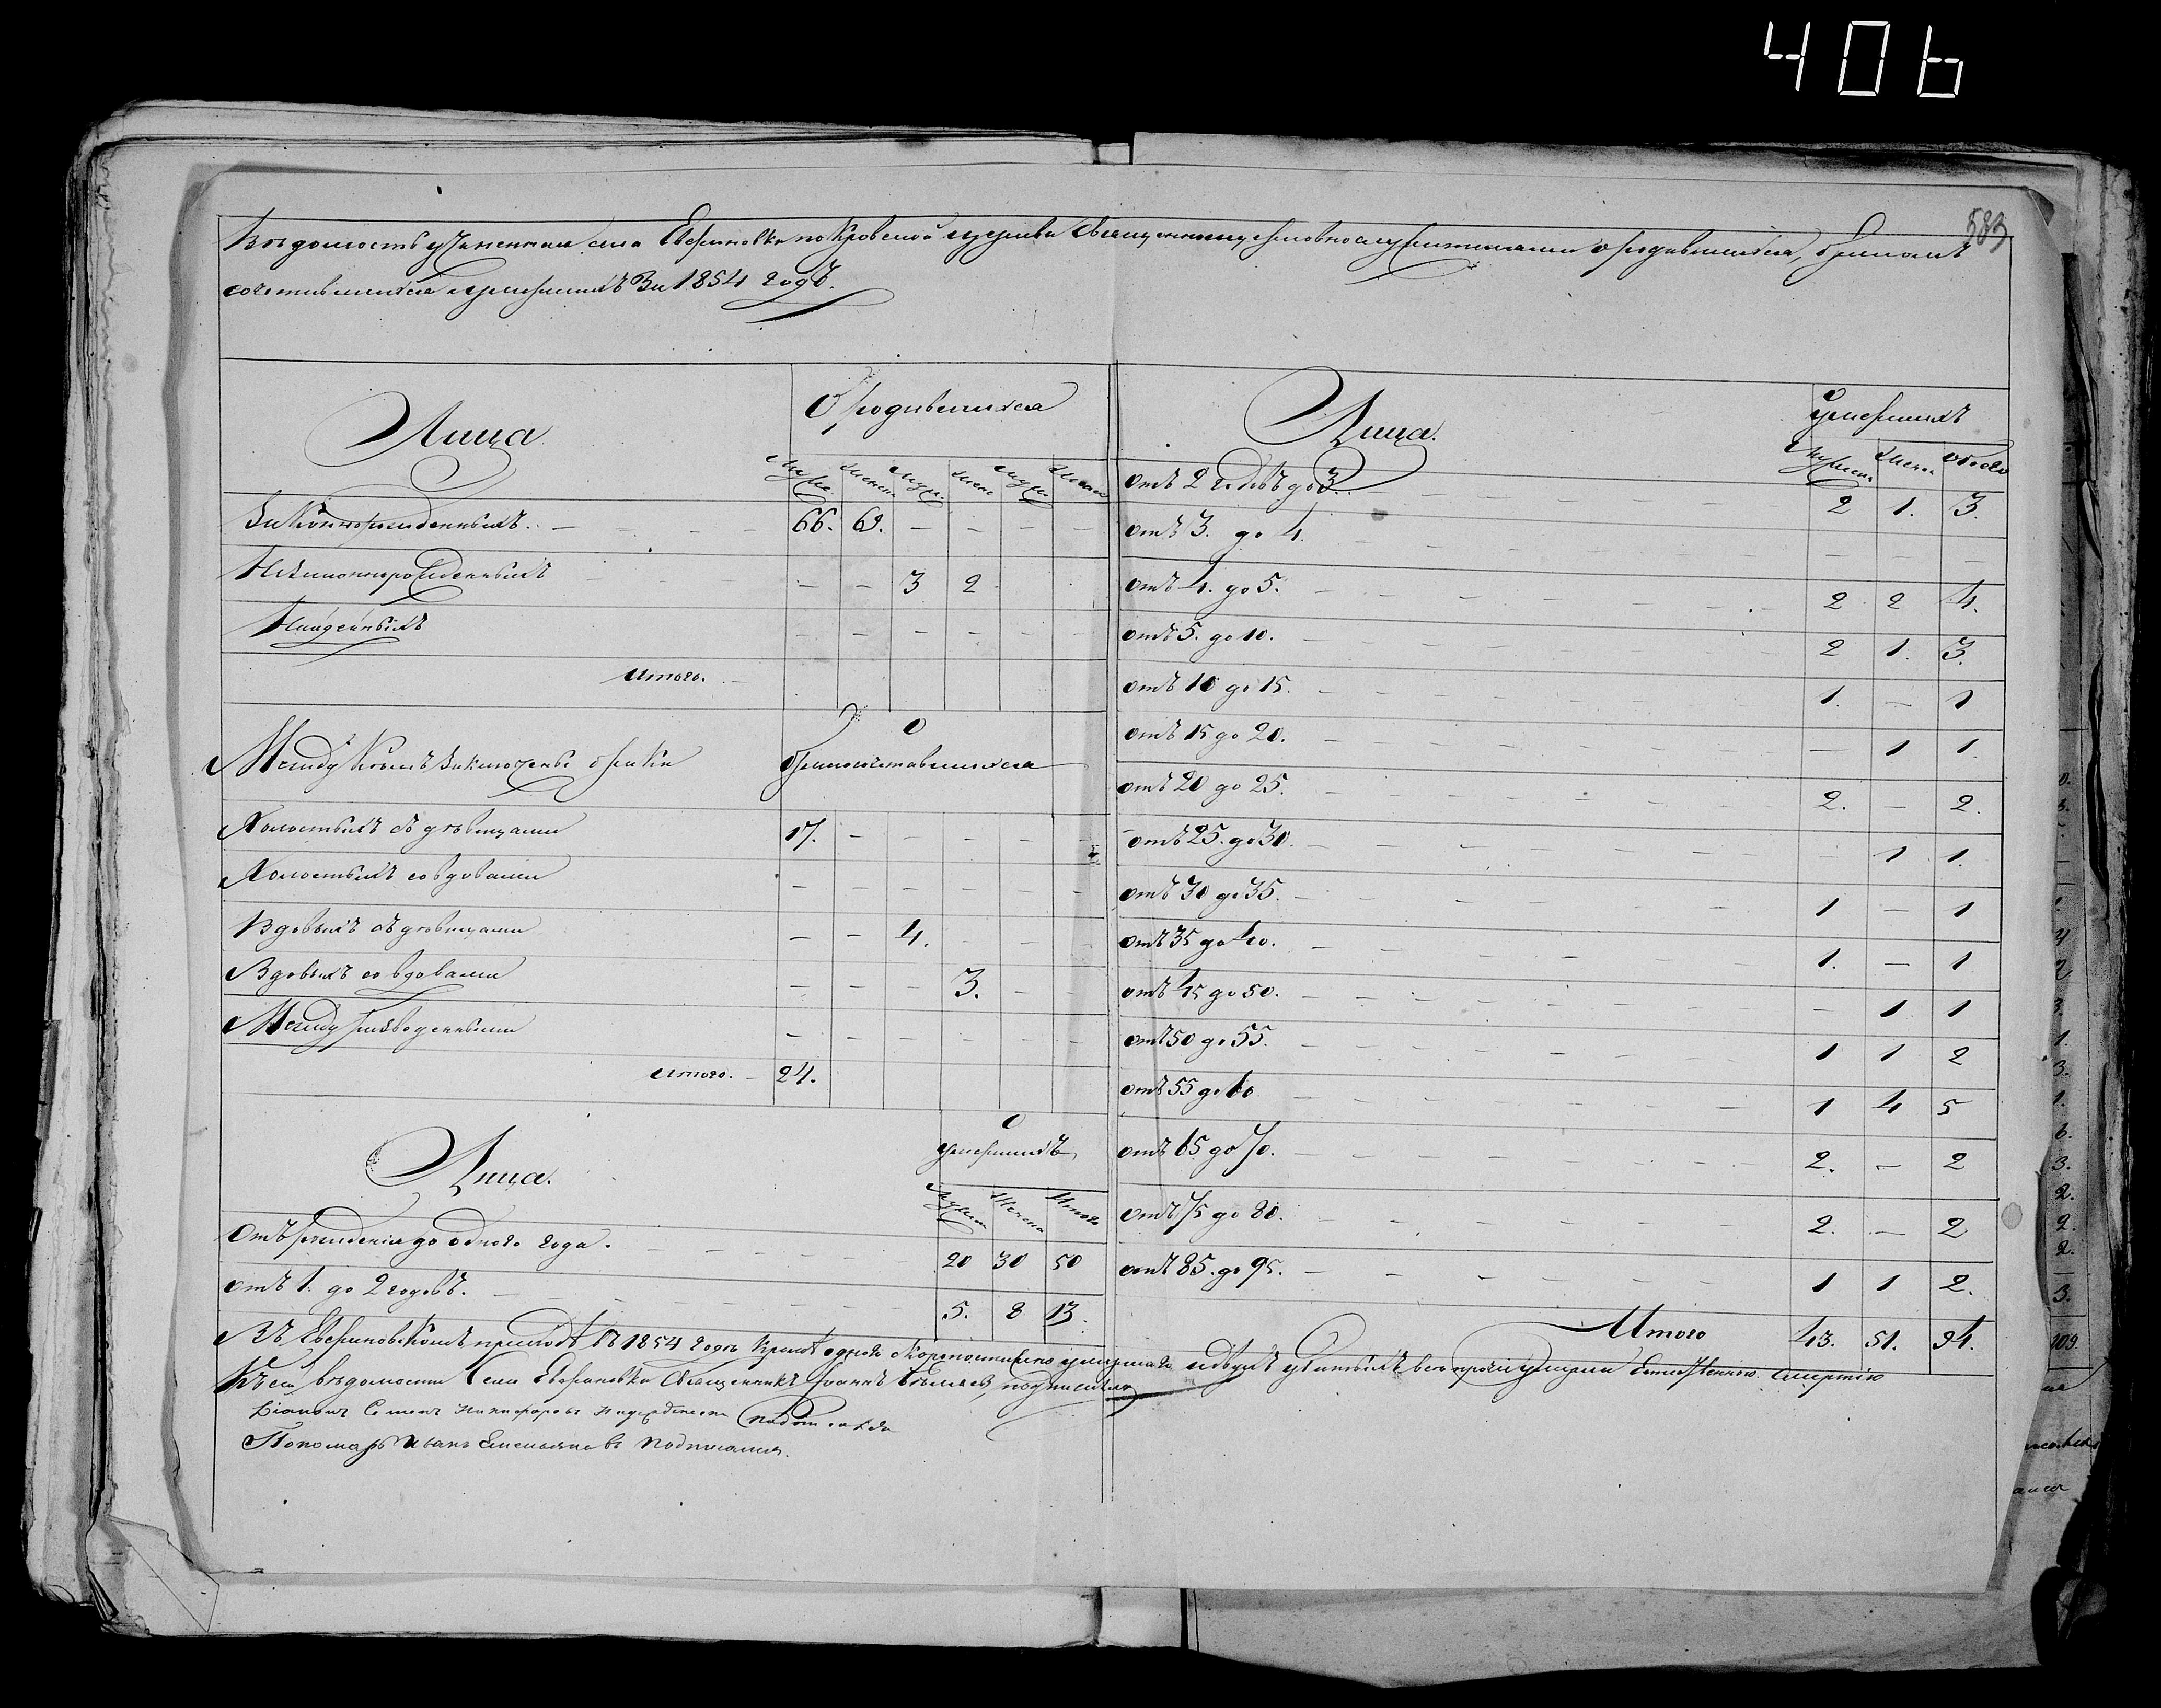 406
583
Ведомость учиненная села Евериновки покровской церкви Священноцерковнослужителями о родившихся, бракомъ
сочетавшихся и умершихъ За 1854 годъ.
Лица
О родившихся
Муже Женск Муж. Жен Муж Женск
Законнорожденныхъ. 66. 69. — — —
Незаконнорожденныхъ — — 3 2
Найденныхъ — — — — — —
Итого.
Между Коимъ Заключены браки
О бракосочетавшихся
Холостыхъ съ девицами 17. — — — — —
Холостыхъ со вдовами — — — — — —
Вдовыхъ съ девицами — — 4. — — —
Вдовыхъ со вдовами — — — 3. — —
Между разведенными — — — — — —
Итого. 24.
Лица.
О умершихъ
Мужеск Женска Итого
Отъ рождения до одного года. 20 30 50
отъ 1. до 2 годовъ. 5. 8 13.
Лица.
О умершихъ
Мужеск Женск Обоего
отъ 2 годовъ до 3. 2 1. 3.
отъ 3. до 4. — — —
отъ 4. до 5. 2 2 4.
отъ 5. до 10. 2 1. 3.
отъ 10 до 15. 1. — 1
отъ 15 до 20. — 1 1.
отъ 20 до 25. 2. — 2.
отъ 25. до 30. — 1 1.
отъ 30 до 35. 1 — 1
отъ 35 до 40. 1. — 1
отъ 45 до 50. — 1 1
отъ 50 до 55. 1 1 2
отъ 55 до 60 1 4 5
отъ 65 до 70. 2. — 2
отъ 75 до 80. 2. — 2
отъ 85. до 95. 1 1 2.
Итого 43. 51. 94.
Въ Евериновскомъ приходе въ 1854 годе кроме одной скоропостижно умершей и двухъ убитыхъ все прочи умерли Естественною смертию
Къ сей ведомости Села Евериновки Священникъ Иоаннъ подписался
Диаконъ Семенъ Никифоровъ подписался
Пономарь Иванъ Емельяновъ Подписался.